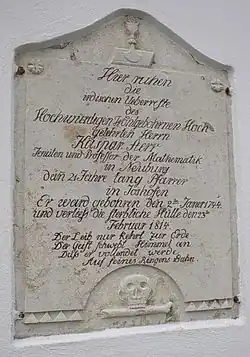 Hier ruhen
die
irdischen Ueberreste
des
Hochwürdigen Wohlgebohrnen Hoch
gelehrten Herrn
Kaspar
und Professor der Mathematik
in Neuburg
dein 21 Jahre lang Pfarrer
in
Er ward gebohren den 2ten Jäner 1744.
und verließ die sterbliche Hülle den 23t
Februar 1814.
Der Leib nur kehrt zur Erde
Der Geist schwebt Himmel an
Daß er vollendet werde
Auf seines Ringens Bahn.